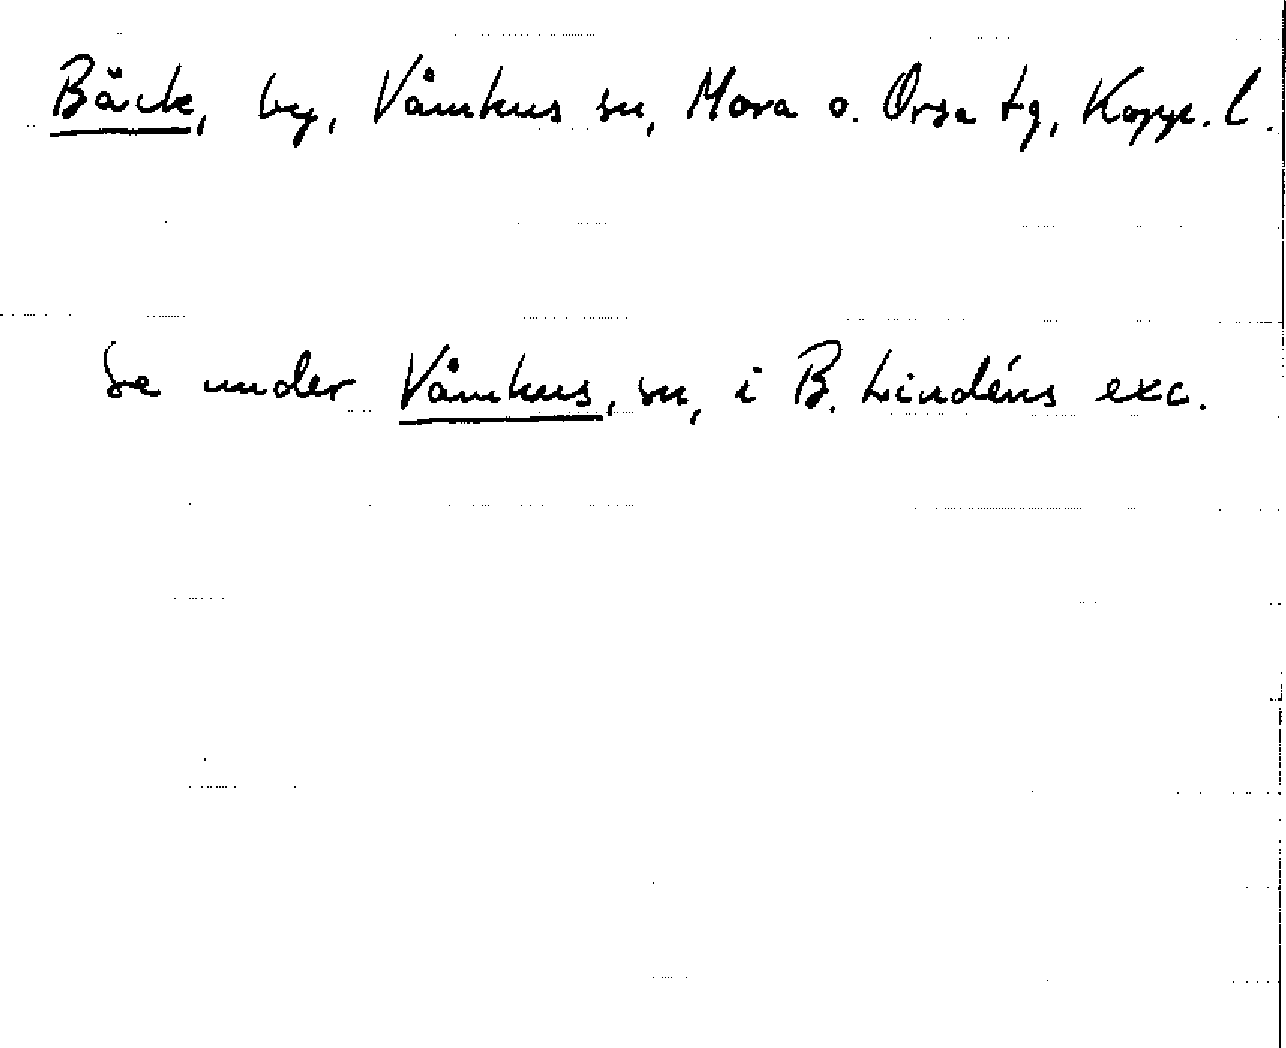 Bäck, by, Våmhus sn, Mora o. Orsa tg, Kopp. l.
Se under Våmhus, sn, i B. Lindéns exc.